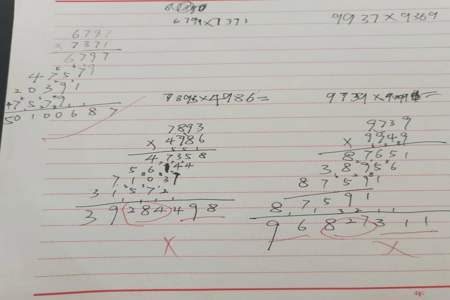 6797×7371
9937×9369
6797
× 7371
6797
47579
20391
47579
50100687
7893×4986=
9739×9949=
7893
× 4986
47358
7 1 0 3 7
3 1 5 7 2
3 9 2 8 4 4 9 8
9739
× 9949
87651
38956
87591
87591
9 6 8 2 7 3 1 1